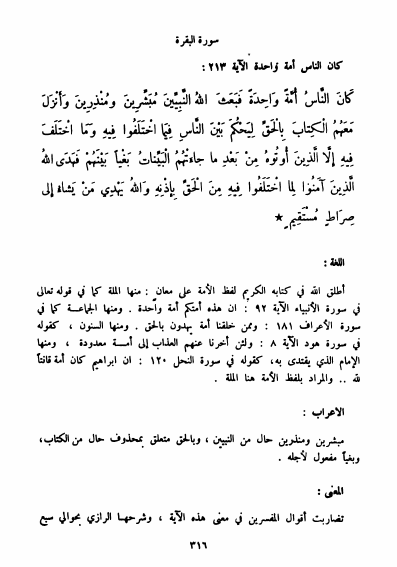 سورة البقرة
كان الناس أمة واحدة الآية ٢١٣ :
كَانَ النَّاسُ أُمَّةً وَاحِدَةً فَبَعَثَ اللهُ النَّبِيِّينَ مُبَشِّرِينَ وَمُنْذِرِينَ وَأَنْزَلَ
مَعَهُمُ الْكِتَابَ بِالْحَقِّ لِيَحْكُمَ بَيْنَ النَّاسِ فِيمَا اخْتَلَفُوا فِيهِ وَمَا اخْتَلَفَ
فِيهِ إِلَّا الَّذِينَ أُوتُوهُ مِنْ بَعْدِ مَا جَاءَتْهُمُ الْبَيِّنَاتُ بَغْياً بَيْنَهُمْ فَهَدَى اللهُ
الَّذِينَ آمَنُوا لِمَا اخْتَلَفُوا فِيهِ مِنَ الْحَقِّ بِإِذْنِهِ وَاللهُ يَهْدِي مَنْ يَشَاءُ إِلَى
صِرَاطٍ مُسْتَقِيمٍ ★
اللغة :
أطلق الله في كتابه الكريم لفظ الأمة على معان : منها الملة كما في قوله تعالى
في سورة الأنبياء الآية ٩٢ : ان هذه أمتكم أمة واحدة . ومنها الجماعة كما في
سورة الأعراف ١٨١ : وممن خلقنا أمة يهدون بالحق . ومنها السنون ، كقوله
في سورة هود الآية ٨ : ولئن أخرنا عنهم العذاب إلى أمة معدودة ، ومنها
الإمام الذي يقتدى به، كقوله في سورة النحل ١٢٠ : ان ابراهيم كان أمة قانتاً
لله .. والمراد بلفظ الأمة هنا الملة .
الاعراب :
مبشرين ومنذرين حال من النبيين ، وبالحق متعلق بمحذوف حال من الكتاب،
وبغياً مفعول لأجله .
المعنى :
تضاربت أقوال المفسرين في معنى هذه الآية ، وشرحها الرازي بحوالي سبع
٣١٦